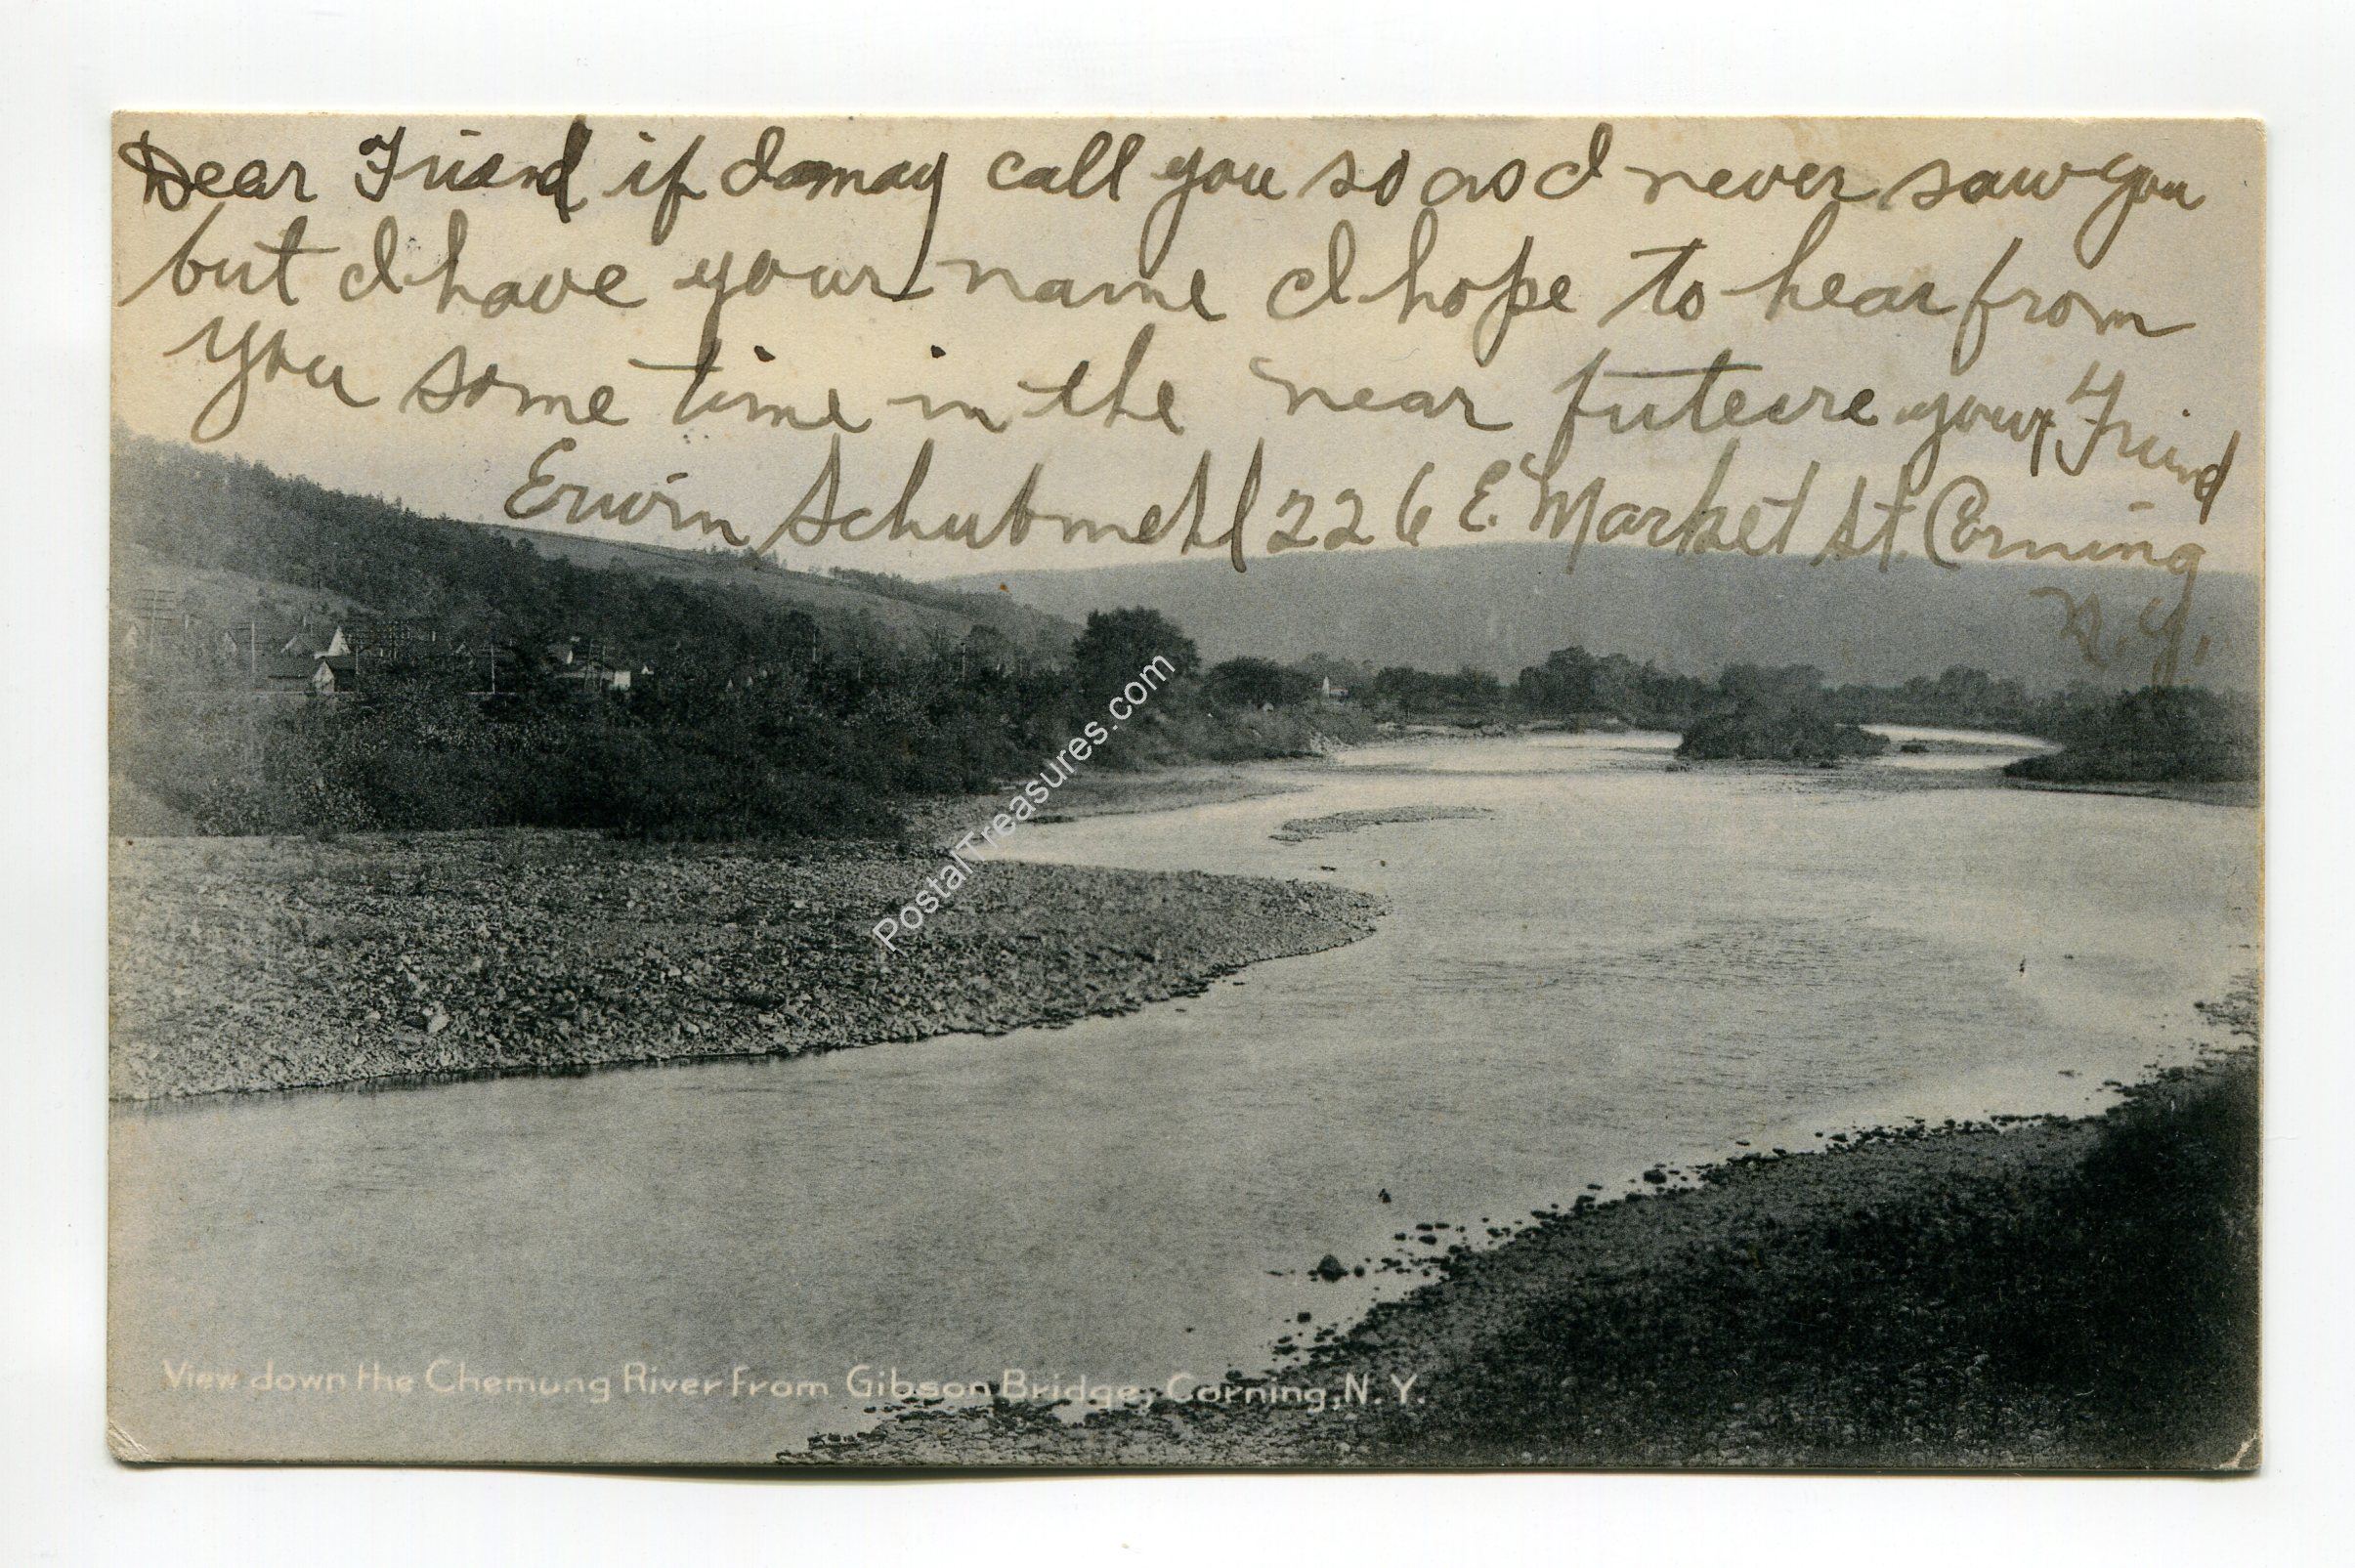 Dear Friend if I may call you so as I never saw you
but I have your name I hope to hear from
you some time in the near future your Friend
Erwin Schubmehl 226 E. Market St. Corning
N.Y.
PostalTreasures.com
View down the Chemung River from Gibson Bridge, Corning, N. Y.